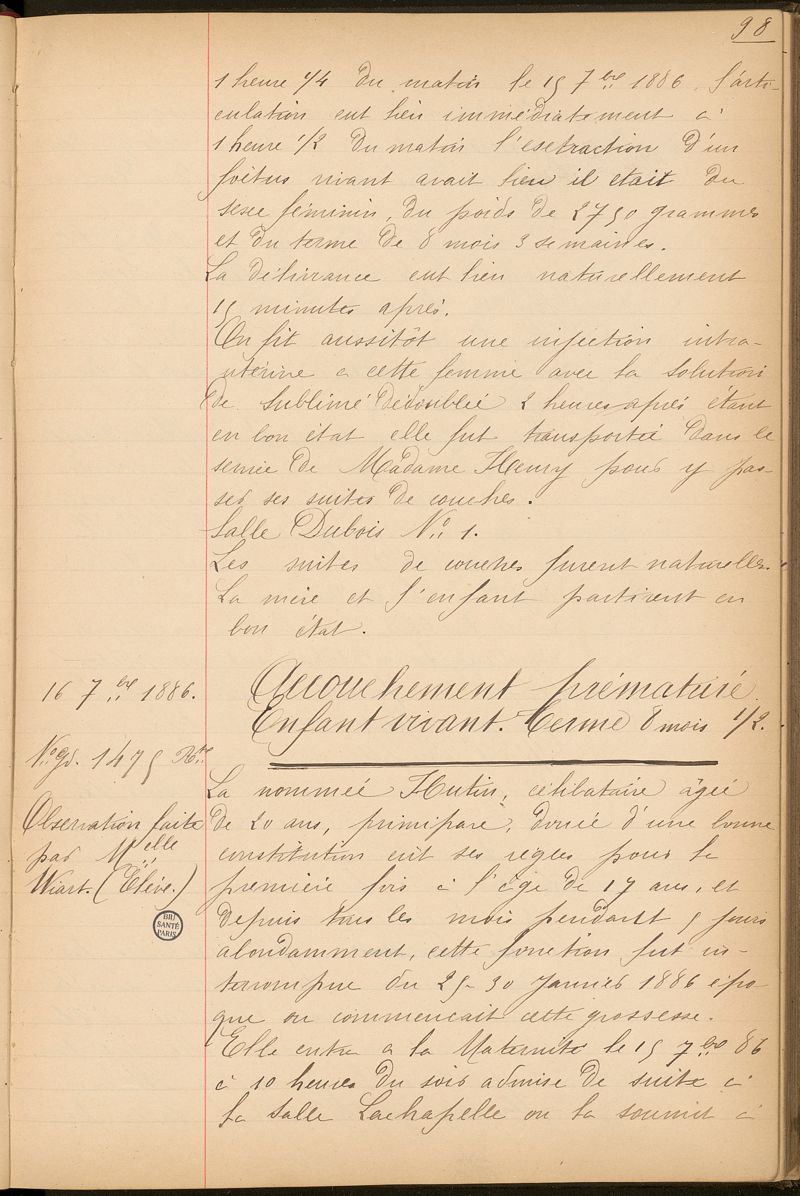 98
1 heure 1/4 du matin le 15 7bre 1886. l'arti-
culation eut lieu immédiatement à
1 heure 1/2 du matin l'extraction d'un
foetus vivant avait lieu il était du
sexe féminin, du poids de 2750 grammes
et du terme de 8 mois 3 semaines.
La délivrance eut lieu naturellement
15 minutes après.
On fit aussitôt une injection intra-
utérine a cette femme avec la solution
de sublimé dédoublée 2 heures après étant
en bon état elle fut transportée dans le
service de Madame Henry pour y pas-
ser ses suites de couches.
Salle Dubois No 1.
Les suites de couches furent naturelles.
La mère et l'enfant partirent en
bon état.
16 7bre 1886.
Accouchement prématuré.
Enfant vivant. Terme 8 mois 1/2.
No gd. 1475 Rtre
La nommée Hutin, célibataire âgée
Observation faite
de 20 ans, primipare, douée d'une bonne
par Melle
constitution eût ses règles pour la
Wiart. (Elève.)
première fois à l'âge de 17 ans, et
BIU
SANTÉ
PARIS
depuis tous les mois pendant 5 jours
abondamment, cette fonction fut in-
terrompue du 25-30 Janvier 1886 épo-
que ou commencait cette grossesse.
Elle entra a la Maternité le 15 7bre 86
à 10 heures du soir admise de suite à
la salle Lachapelle on la soumit à